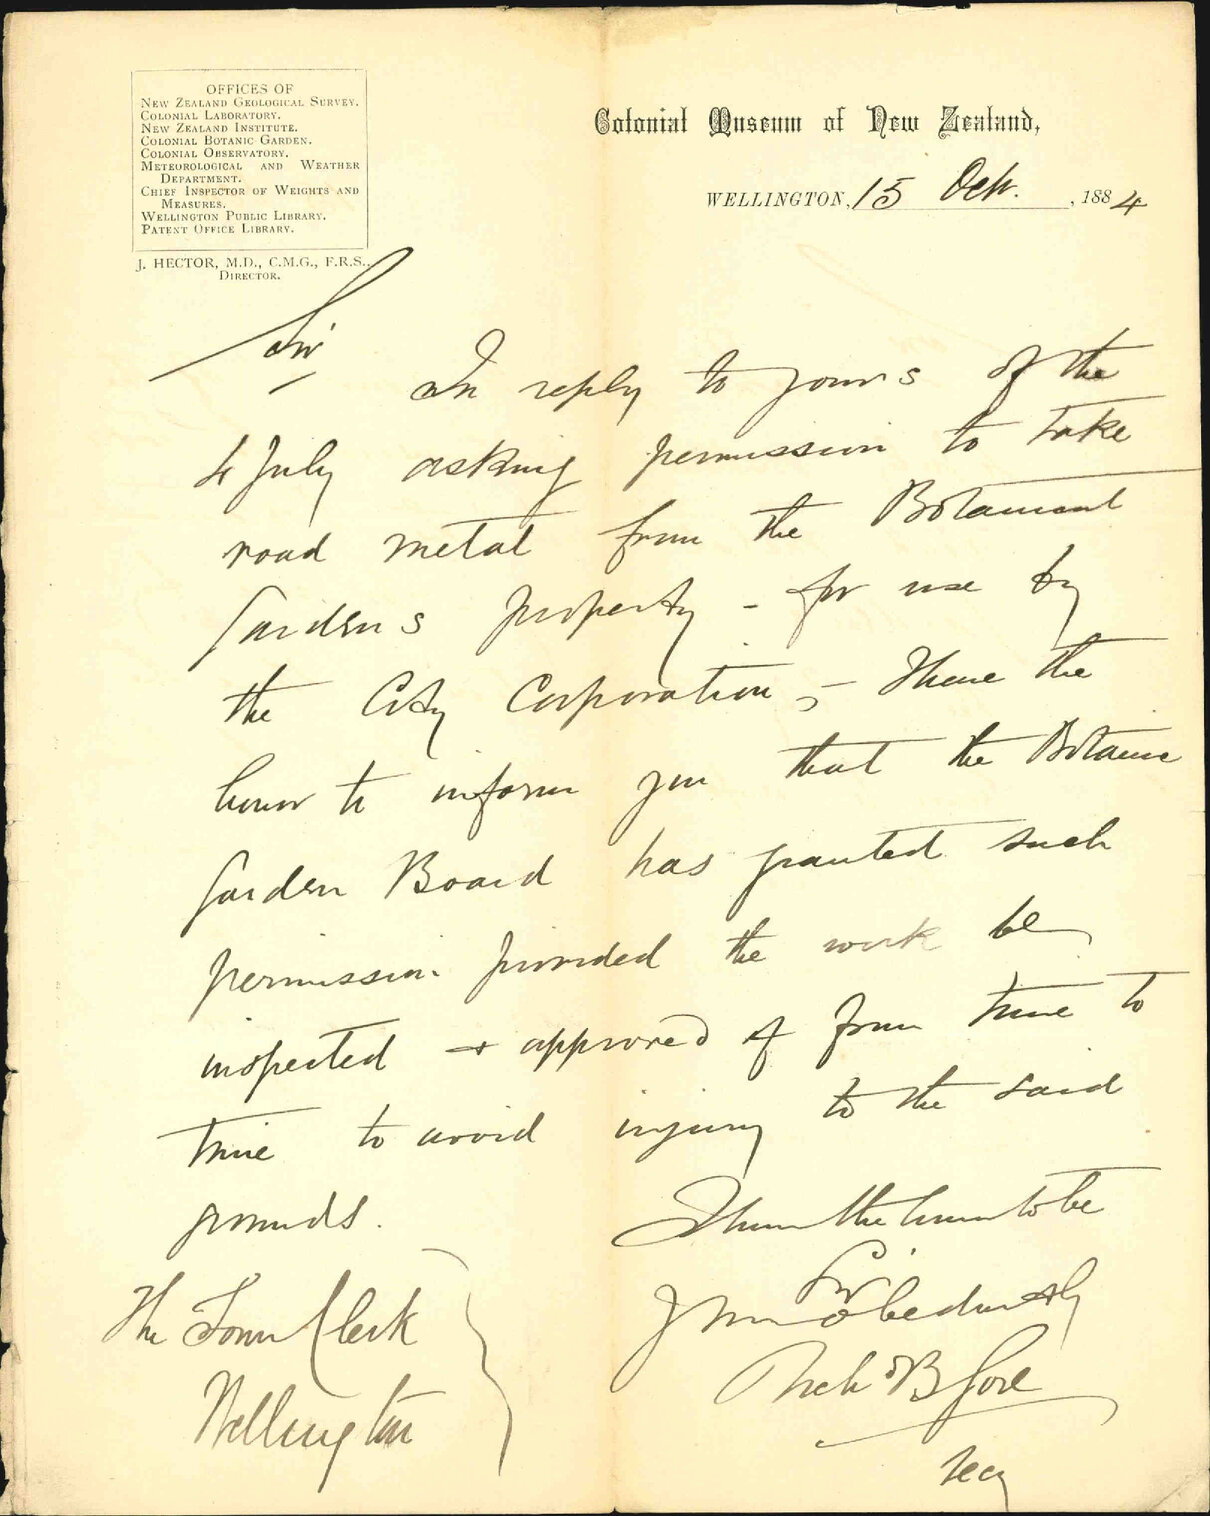 OFFICES OF
NEW ZEALAND GEOLOGICAL SURVEY.
COLONIAL LABORATORY.
NEW ZEALAND INSTITUTE.
COLONIAL BOTANIC GARDEN.
COLONIAL OBSERVATORY.
METEOROLOGICAL AND WEATHER
DEPARTMENT.
CHIEF INSPECTOR OF WEIGHTS AND
MEASURES.
WELLINGTON PUBLIC LIBRARY.
PATENT OFFICE LIBRARY.
J. HECTOR, M.D., C.M.G., F.R.S.,
DIRECTOR.
Colonial Museum of New Zealand,
WELLINGTON, 15 Oct. , 1884
Sir
In reply to yours of the
4 July asking permission to take
road metal from the Botanical
Gardens property - for use by
the City Corporation, - I have the
honor to inform you that the Botanic
Garden Board has granted such
permission provided the work be
inspected + approved of from time to
time to avoid injury to the said
grounds.
I have the honor to be
Sir
Your obediently
Rich^d B Gore
Secy
The Town Clerk
Wellington